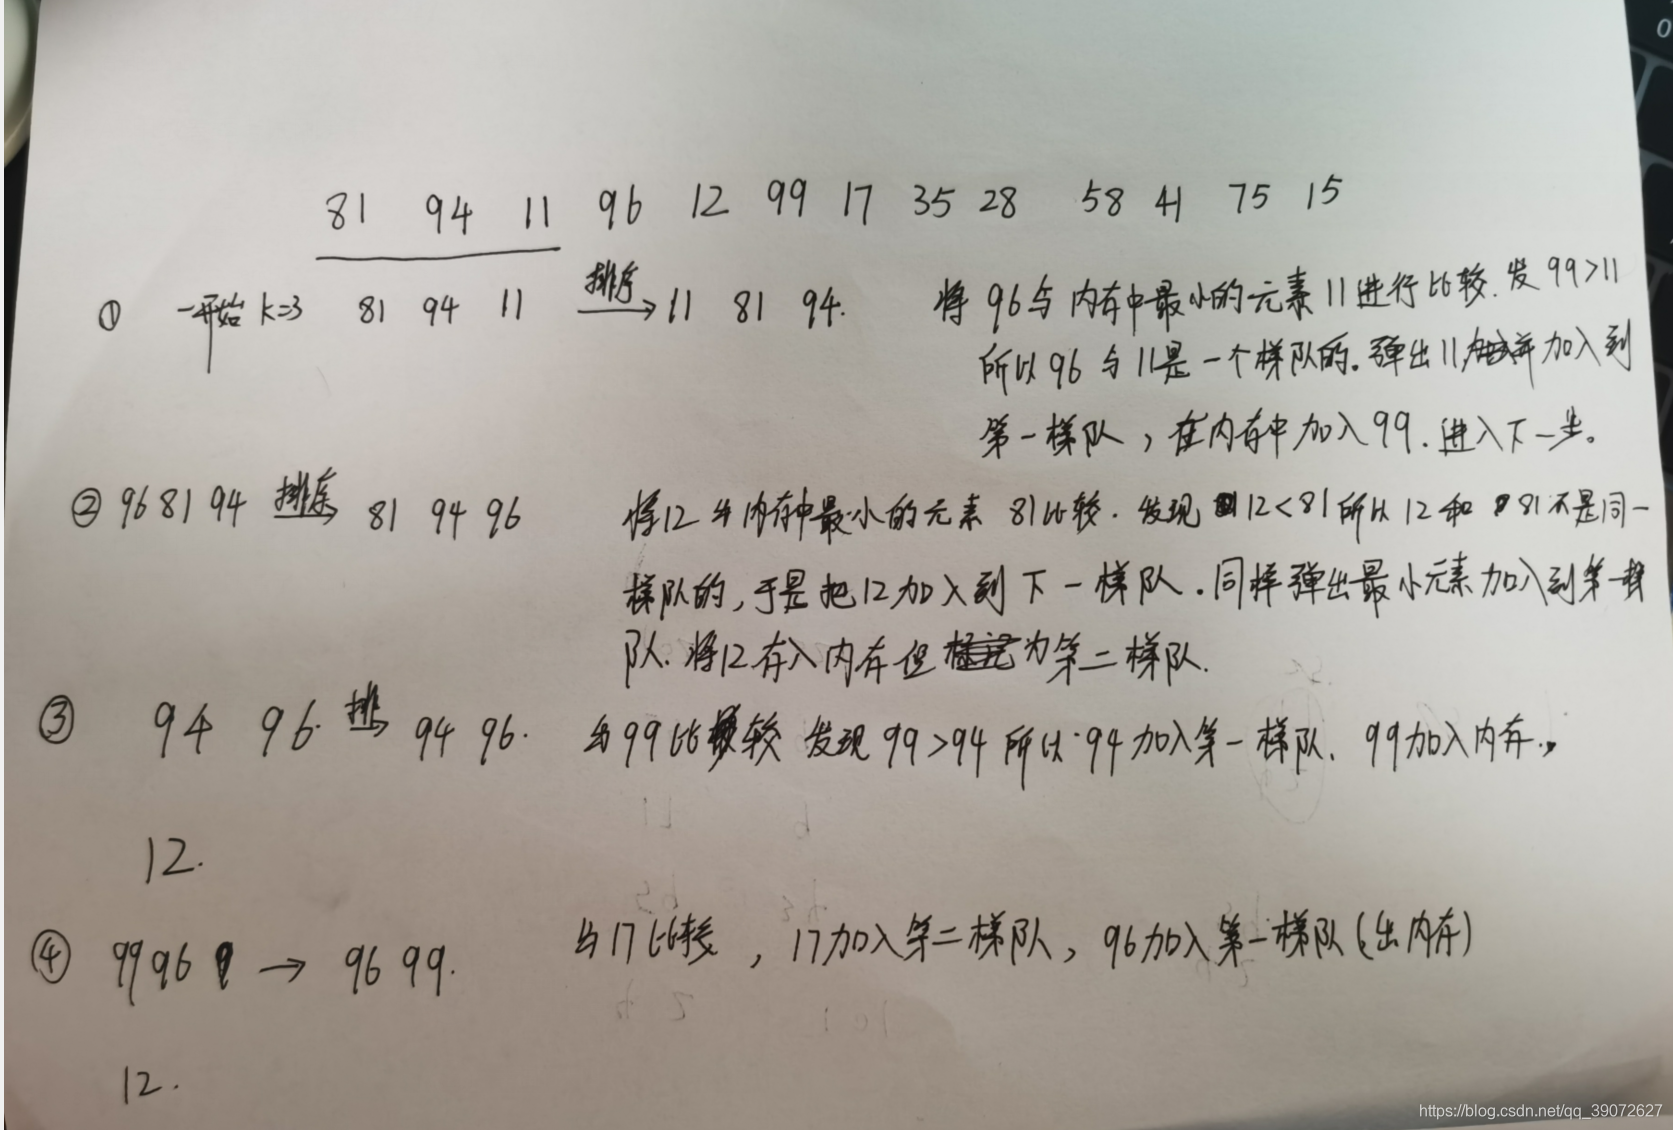 81 94 11 96 12 99 17 35 28 58 41 75 15
① 一开始 k=3 81 94 11 排序 11 81 94. 将 96与 内存中最小的元素 11进行比较. 发 99>11
所以 96 与 11是一个梯队的。弹出11 并加入到
第一梯队，在内存中加入99. 进入下一步。
② 96 81 94 排序 81 94 96 将12与内存中最小的元素 81比较. 发现 12<81所以 12和 81不是同一
梯队的, 于是把12加入到 下一梯队. 同样弹出最小元素加入到第一梯
队. 将12存入内存但 标记为第二梯队.
③ 94 96. 排 94 96. 与99比较 发现 99>94 所以 94 加入第一梯队. 99加入内存.
12.
④ 99 96 → 96 99. 与17比较, 17加入第二梯队, 96加入第一梯队(出内存)
12.
https://blog.csdn.net/qq_39072627